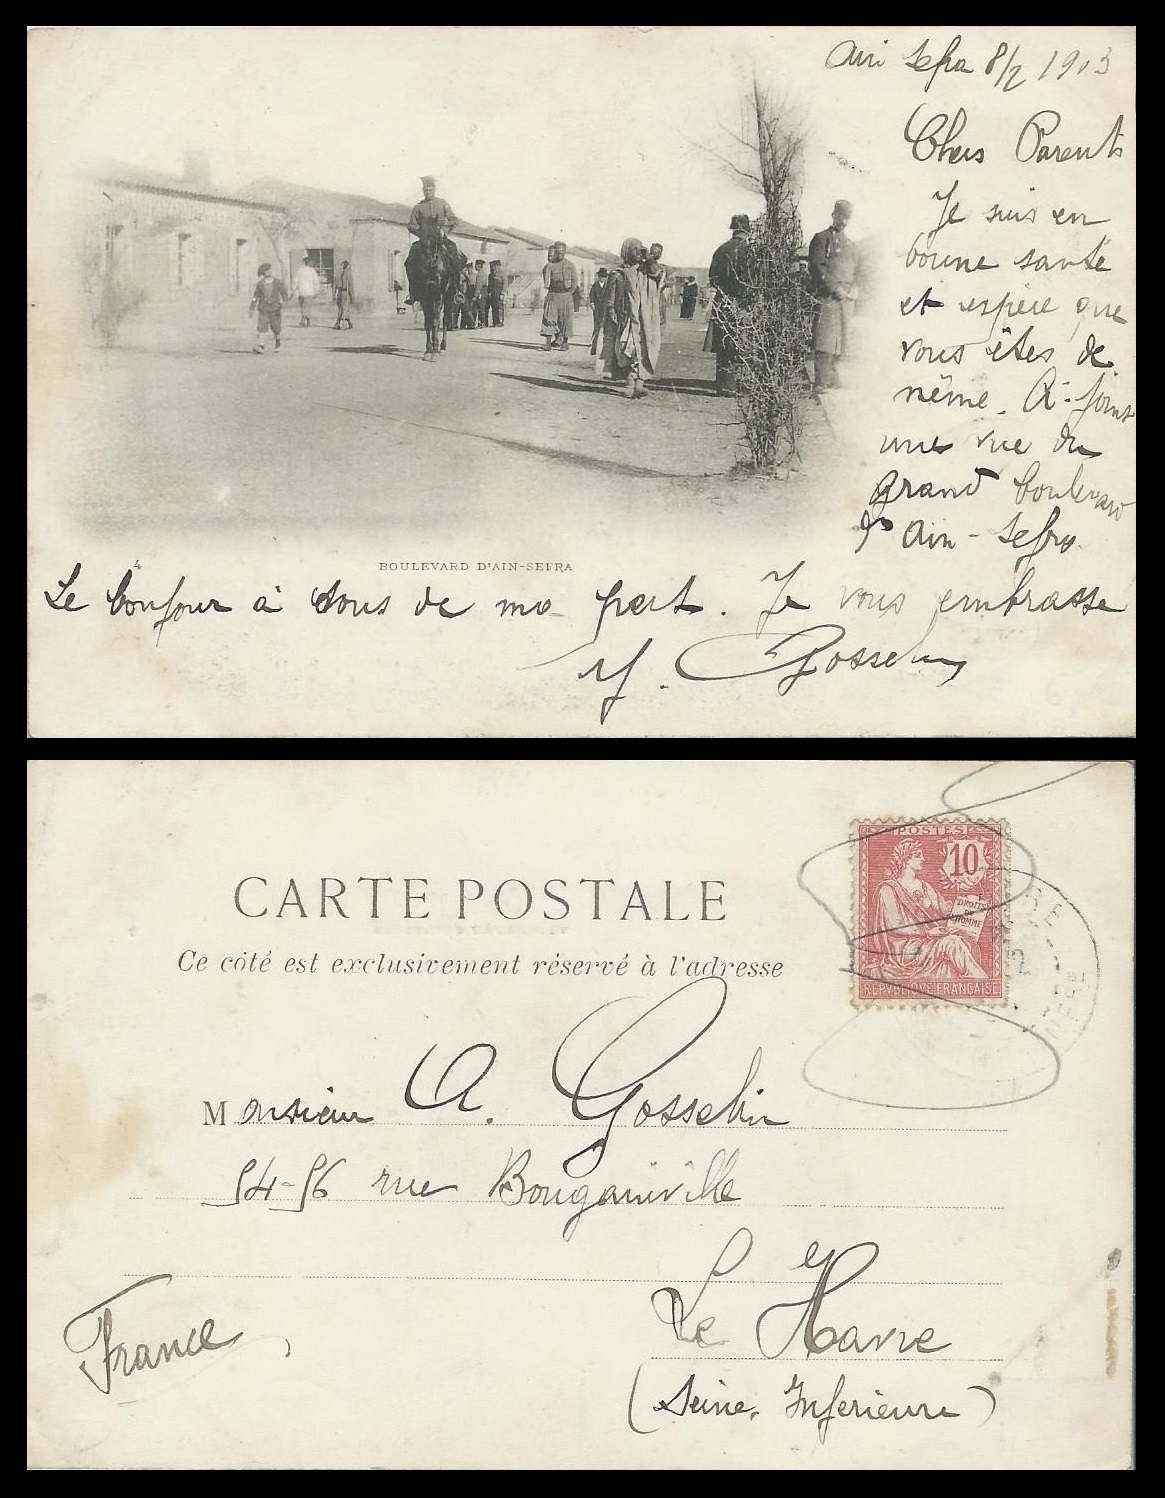 Ain Sefra 8/2 1903
Chers Parents
Je suis en
bonne santé
et espère que
vous êtes de
même. Ci-joint
une vue du
grand boulevard
d' Ain-Sefra
4
BOULEVARD D'AIN-SEFRA
Le bonjour à tous de ma part. Je vous embrasse
Gosselin
POSTES
10
DROITS
DE
L'HOMME
REPUBLIQUE FRANÇAISE
CARTE POSTALE
Ce côté est exclusivement réservé à l'adresse
Monsieur A. Gosselin
54-56 rue Bougainville
Le Havre
(Seine-Inférieure)
France